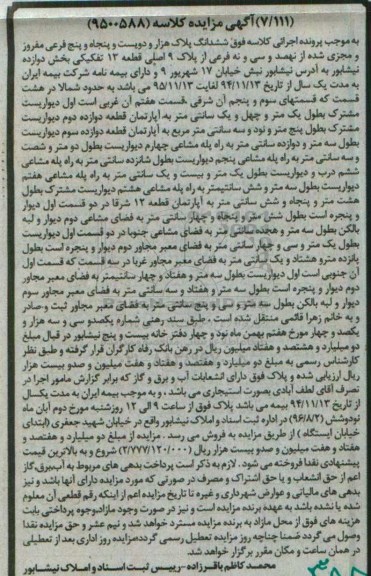 (۷/۱۱۱)آگهی مزایده کلاسه (۹۵۰۰۵۸۸)
به موجب پرونده اجرائی کلاسه فوق ششدانگ پلاک هزار و دویست و پنجاه و پنج فرعی مفروز
و مجزی شده از نهصد و سی و نه فرعی از پلاک ۹ اصلی قطعه ۱۲ تفکیکی بخش دوازده
نیشابور به آدرس نیشابور نبش خیابان ۱۷ شهریور ۹ و دارای بیمه نامه شرکت بیمه ایران
به مدت یک سال از تاریخ ۹۴/۱۱/۱۳ لغایت ۹۵/۱۱/۱۳ می باشد به حدود شمالا در هشت
قسمت که قسمتهای سوم و پنجم آن شرقی ،قسمت هفتم آن غربی است اول دیواریست
مشترک بطول یک متر و چهل و یک سانتی متر به آپارتمان قطعه دوازده دوم دیواریست
مشترک بطول پنج متر و نود و سه سانتی متر مربع به آپارتمان قطعه دوازده سوم دیواریست
بطول سه متر و دوازده سانتی متر به راه پله مشاعی چهارم دیواریست بطول دو متر و شصت
و سه سانتی متر به راه پله مشاعی پنجم دیواریست بطول شانزده سانتی متر به راه پله مشاعی
ششم درب و دیواریست بطول یک متر و بیست و یک سانتی متر به راه پله مشاعی هفتم
دیواریست بطول سه متر و شش سانتیمتر به راه پله مشاعی هشتم دیواریست مشترک بطول
هشت متر و پنجاه و شش سانتی متر به آپارتمان قطعه ۱۲ شرقا در دو قسمت اول دیوار
و پنجره است بطول شش متر و پنجاه و چهار سانتی متر به فضای مشاعی دوم دیوار و لبه
بالکن بطول سه متر و هجده سانتی متر به فضای مشاعی جنوبا در دو قسمت اول دیواریست
بطول یک متر و سی و چهار سانتی متر به فضای معبر مجاور دوم دیوار و پنجره است بطول
پانزده مترو هشتاد و یک سانتی متر به فضای معبر مجاور غربا در سه قسمت که قسمت اول
آن جنوبی است اول دیواریست بطول سه متر و هفتاد و چهار سانتیمتر به فضای معبر مجاور
دوم دیوار و پنجره است بطول سه متر و هفتاد و سه سانتی متر به فضای معبر مجاور سوم
دیوار و لبه بالکن بطول سه متر و سی و پنج سانتی متر به فضای معبر مجاور ثبت و صادر
و به خانم زهرا قائمی منتقل شده است . طبق سند رهنی شماره یکصدو سی و سه هزار و
یکصد و چهار مورخ هفتم بهمن ماه نود و چهار دفتر خانه بیست و پنج نیشابور در قبال مبلغ
دو میلیارد و هشتصد و هفتاد میلیون ریال در رهن بانک رفاه کارگران قرار گرفته و طبق نظر
کارشناس رسمی به مبلغ دو میلیارد و هفتصد و هفتاد و هفت میلیون و صدو بیست هزار
ریال ارزیابی شده و پلاک فوق دارای انشعابات آب و برق و گاز که برابر گزارش مامور اجرا در
تصرف آقای لطف آبادی بصورت استیجاری می باشد ، و به موجب بیمه ایران به مدت یکسال
از تاریخ ۹۴/۱۱/۱۳ بیمه می باشد پلاک فوق از ساعت ۹ الی ۱۲ روزشنبه مورخ دوم آبان ماه
نودوشش (۹۶/۸/۲) در اداره ثبت اسناد و املاک نیشابور واقع در خیابان شهید جعفری (ابتدای
خیابان ایستگاه ) از طریق مزایده به فروش می رسد . مزایده از مبلغ دو میلیارد و هفتصد و
هفتاد و هفت میلیون و صدو بیست هزار ریال (۲/۷۷۷/۱۲۰/۰۰۰) شروع و به بالاترین قیمت
پیشنهادی نقدا فروخته می شود. لازم به ذکر است پرداخت بدهی های مربوط به آب،برق،گاز
اعم از حق انشعاب و یا حق اشتراک و مصرف در صورتی که مورد مزایده دارای آنها باشد و نیز
بدهی های مالیاتی و عوارض شهرداری و غیره تا تاریخ مزایده اعم از اینکه رقم قطعی آن معلوم
شده یا نشده باشد به عهده برنده مزایده است و نیز در صورت وجود مازادوجوه پرداختی بابت
هزینه های فوق از محل مازاد به برنده مزایده مسترد خواهد شد و نیم عشر و حق مزایده نقدا
وصول می گردد ضمنا چنانچه روز مزایده تعطیل رسمی گرددمزایده روز اداری بعد از تعطیلی
در همان ساعت و مکان مقرر برگزار خواهد شد.
محمد کاظم باقرزاده-رییس ثبت اسناد و املاک نیشابور